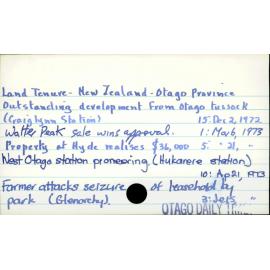 Land Tenure - New Zealand - Otago Province
Outstanding development from Otago tussock
(Craiglynn Station) 15: Dec 2, 1972
Walter Peak sale wins approval. 1: May 6, 1973
Property at Hyde realises $36,000 5: " 21, "
West Otago station pioneering (Hukarere station)
10: April, 1973
Farmer attacks seizure of leasehold by
park (Glenorchy). 3:
OTAGO DAILY